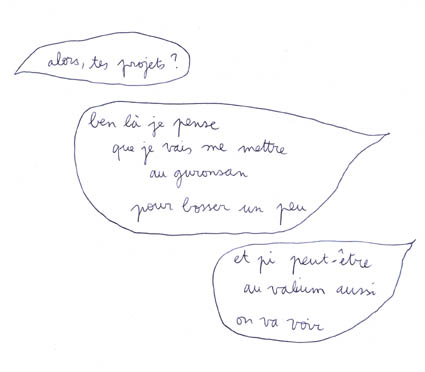 alors, tes projets ?
ben là je pense
que je vais me mettre
au guronsan
pour bosser un peu
et pi peut-être
au valium aussi
on va voir